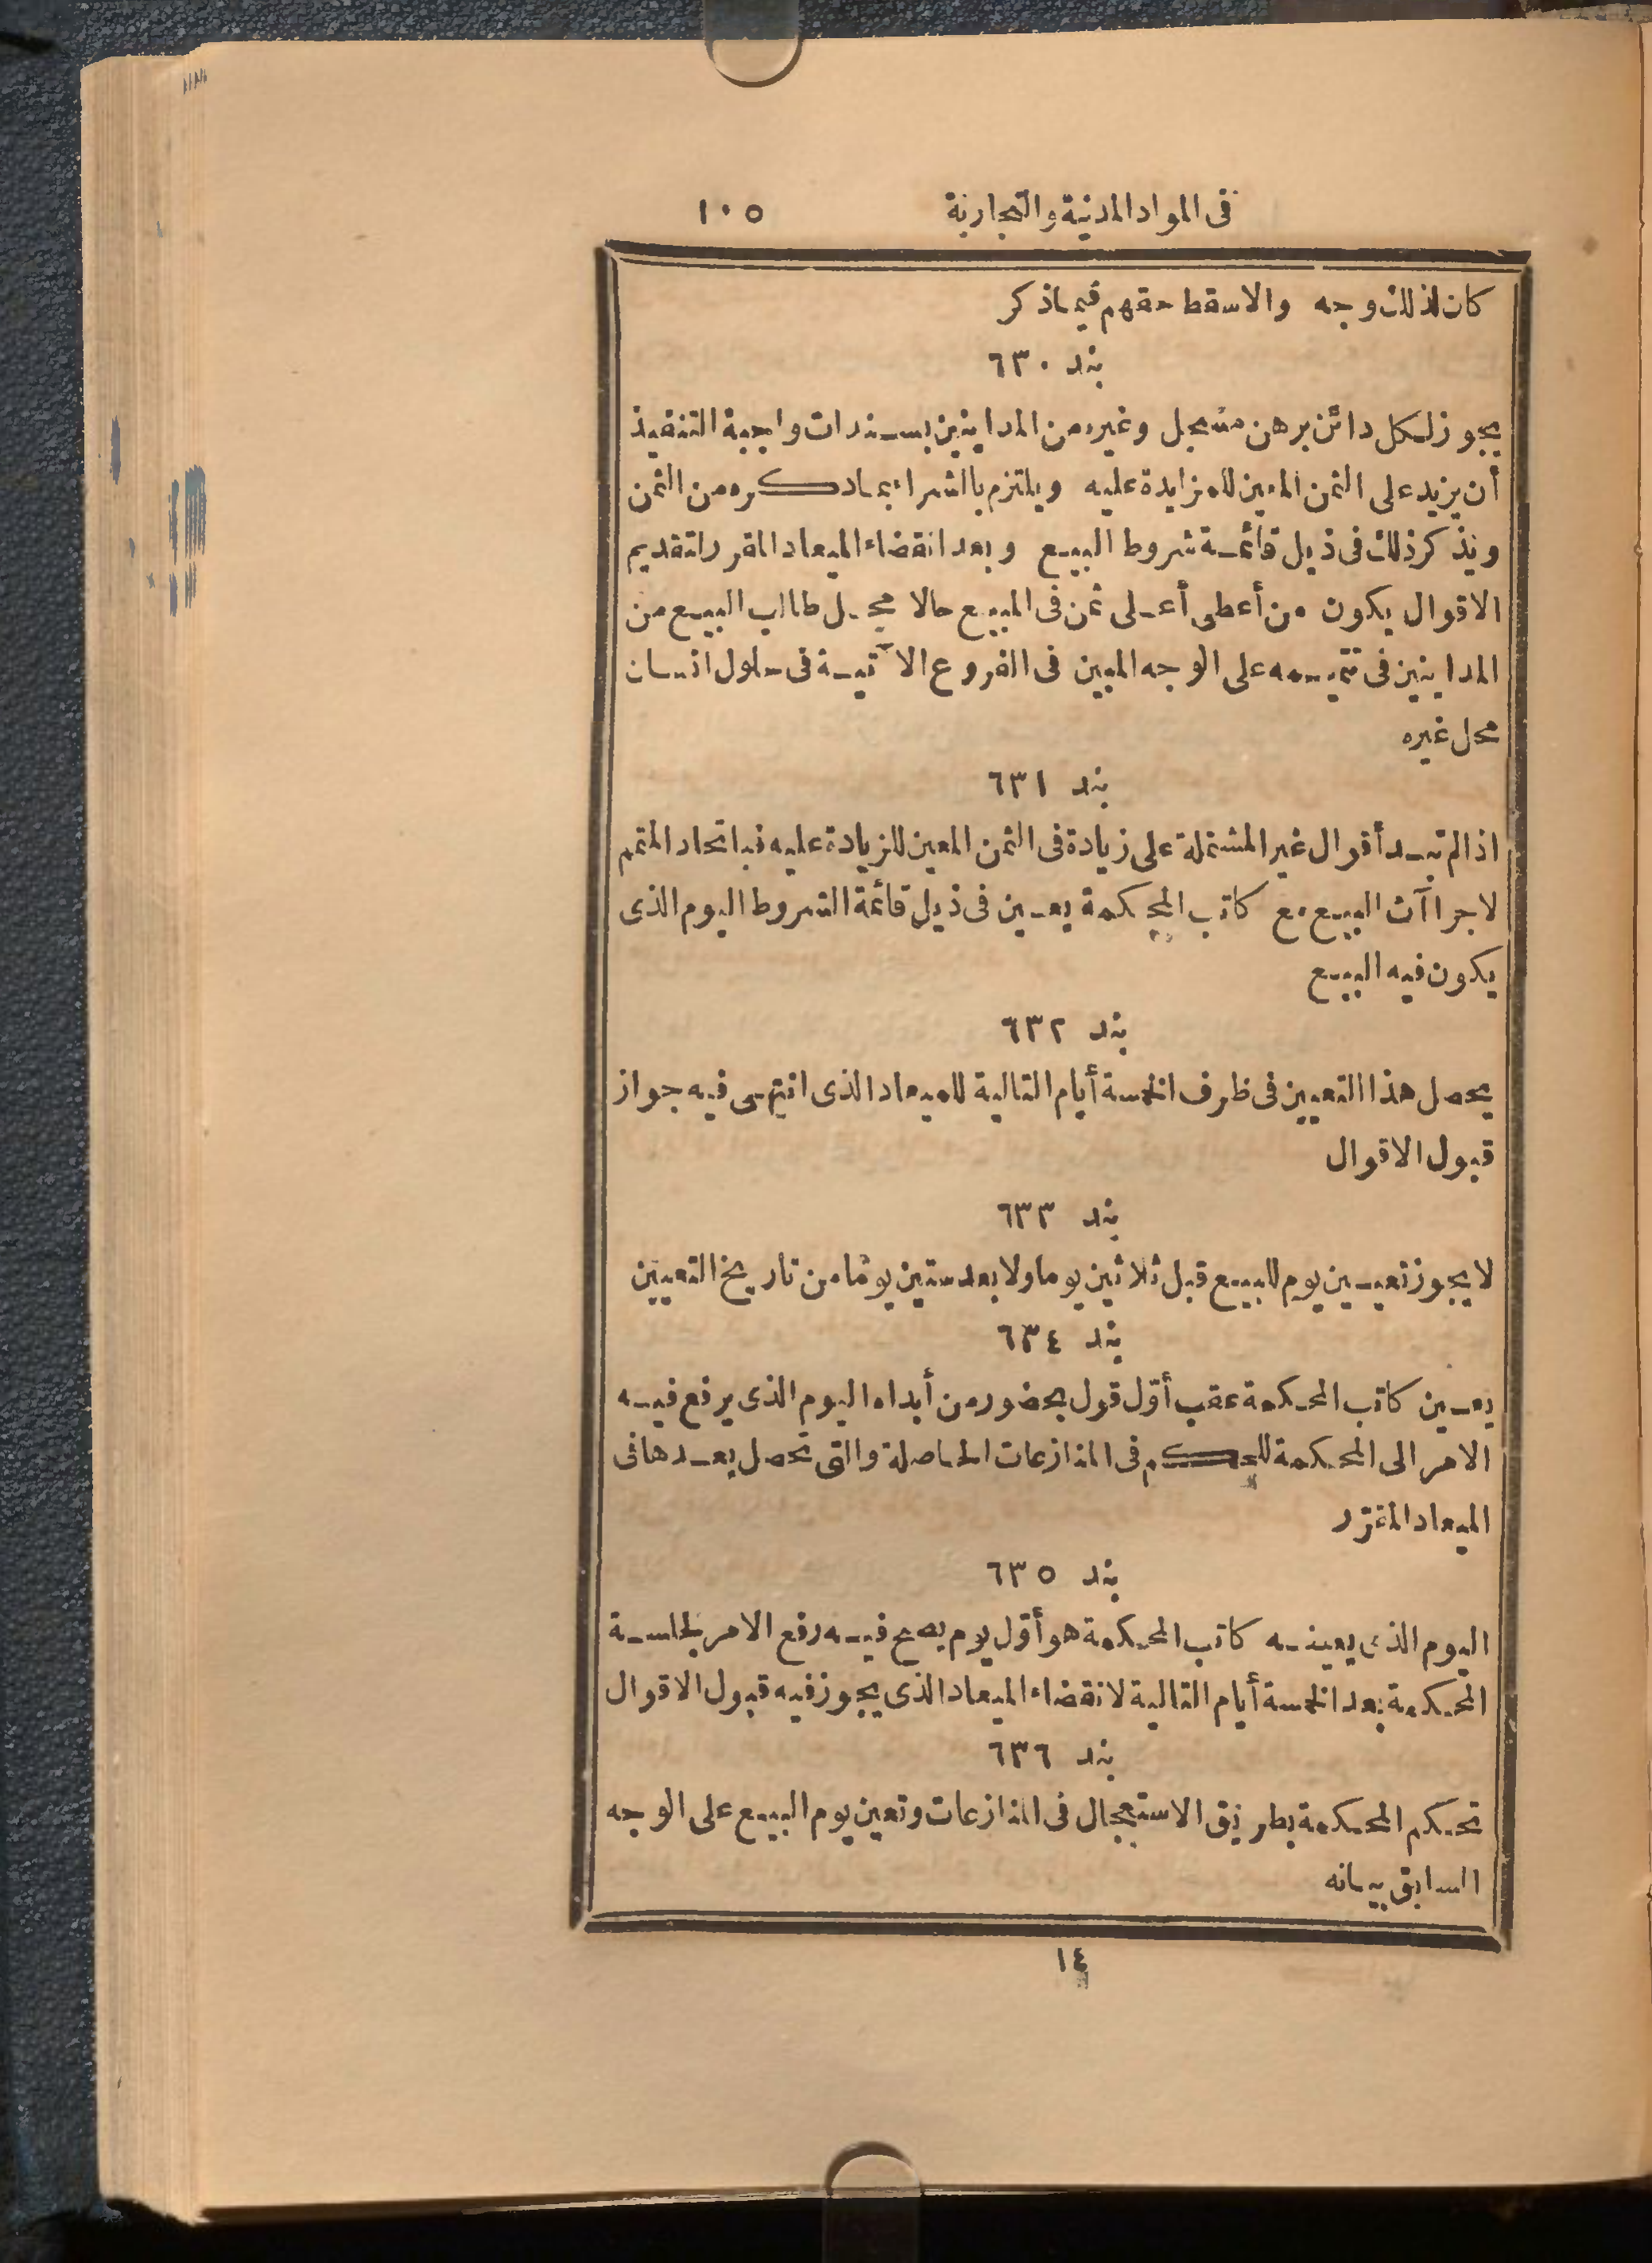 فى المواد المدنية والتجارية ١٠٥
كان لذلك وجه والاسقط حقهم فيماذكر
بند ٦٣٠
يجوز لكل دائن برهن مسجل وغيره من المداينين بسندات واجبة التنفيذ
أن يزيد على الثمن المعين للمزايدة عليه ويلتزم بالشراء بماذكره من الثمن
ويذكر ذلك فى ذيل قائمة شروط البيع وبعد انقضاء الميعاد المقرر لتقديم
الاقوال يكون من أعطى أعلى ثمن فى المبيع حالا محل طالب البيع من
المداينين فى تتميمه على الوجه المبين فى الفروع الآتية فى حلول انسان
محل غيره
بند ٦٣١
اذا لم تبد أقوال غير المشتملة على زيادة فى الثمن المعين للزيادة عليه فباتحاد المتمم
لاجراآت البيع مع كاتب المحكمة يعين فى ذيل قائمة الشروط اليوم الذى
يكون فيه البيع
بند ٦٣٢
يحصل هذا التعيين فى ظرف الخمسة أيام التالية للميعاد الذى انتهى فيه جواز
قبول الاقوال
بند ٦٣٣
لا يجوز تعيين يوم للبيع قبل ثلاثين يوما ولا بعد ستين يوما من تاريخ التعيين
بند ٦٣٤
يعين كاتب المحكمة عقب أوّل قول بحضور من أبداه اليوم الذى يرفع فيه
الامر الى المحكمة للحكم فى المنازعات الحاصلة والتى تحصل بعدها فى
الميعاد المقرّر
بند ٦٣٥
اليوم الذى يعينه كاتب المحكمة هو أوّل يوم يصح فيه رفع الامر بجلسة
المحكمة بعد الخمسة أيام التالية لانقضاء الميعاد الذى يجوز فيه قبول الاقوال
بند ٦٣٦
تحكم المحكمة بطريق الاستعجال فى المنازعات وتعين يوم البيع على الوجه
السابق بيانه
١٤